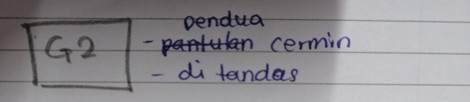 G2
pendua
- pantulan cermin
- di tandas